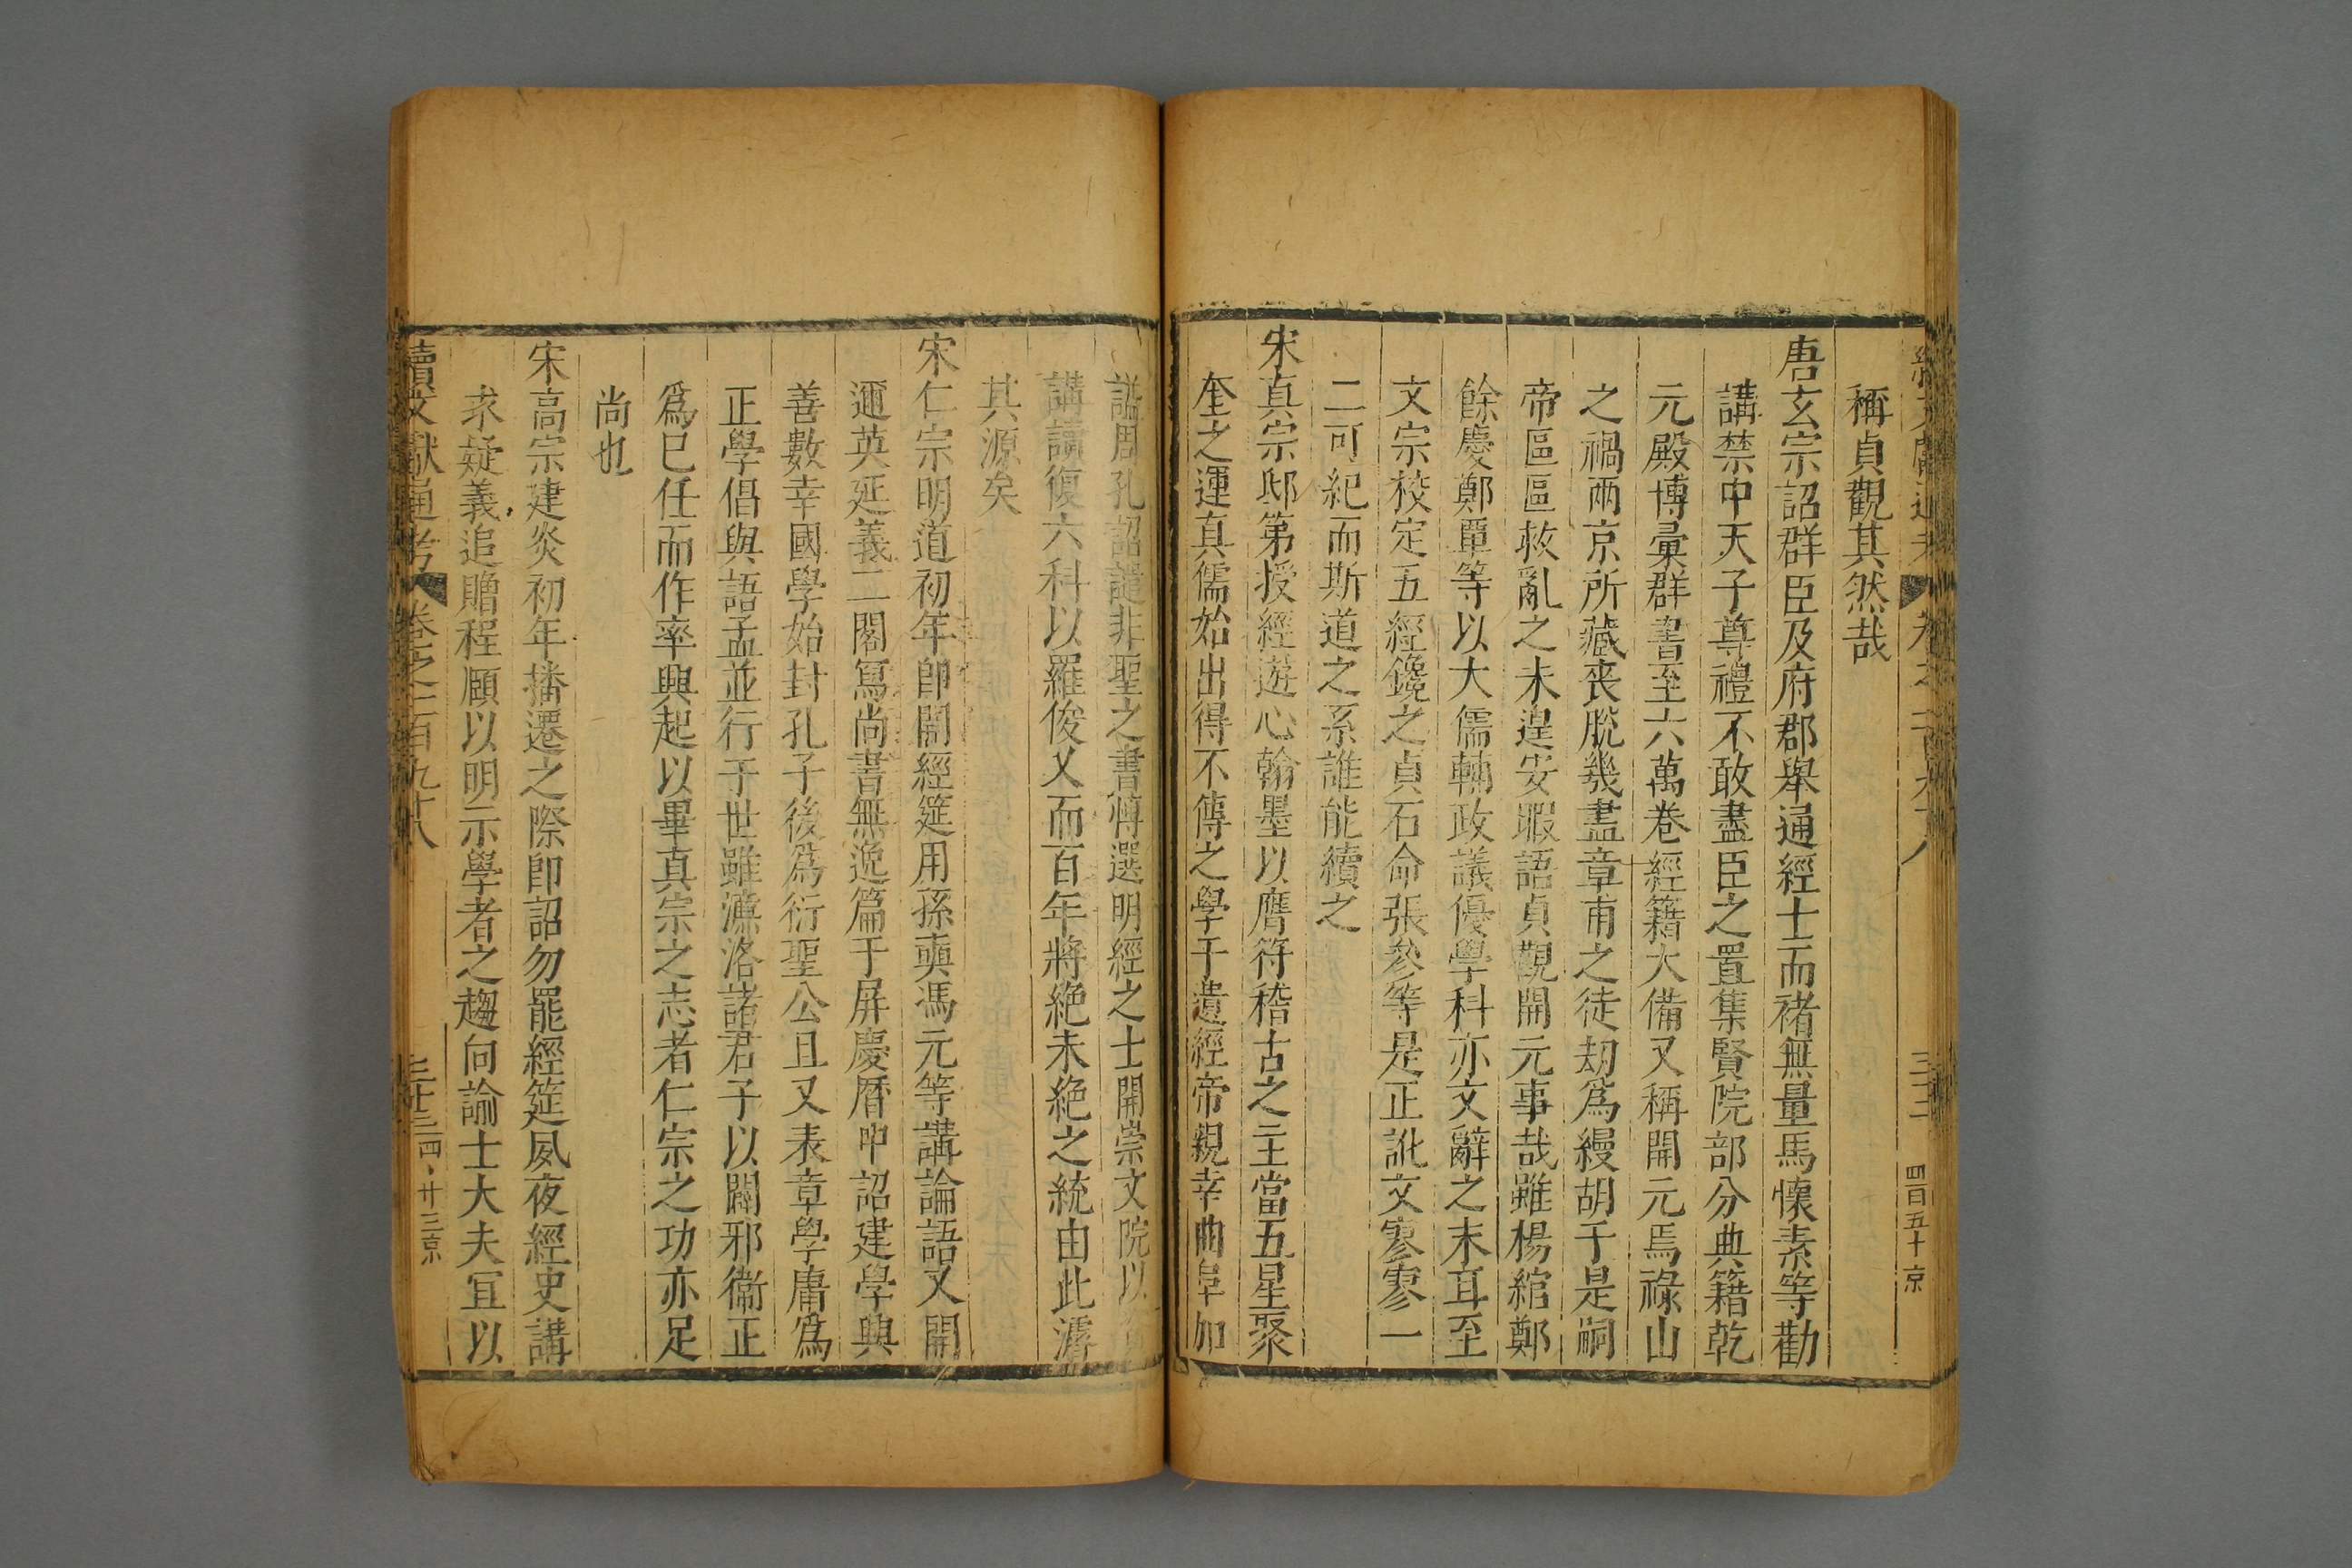 稱貞觀其然哉
唐玄宗詔群臣及府郡舉通經士而褚無量馬懷素等勸
講禁中天子尊禮不敢盡臣之置集賢院部分典籍乾
元殿博彙群書至六萬卷經籍大備又稱開元焉祿山
之禍兩京所藏喪脫幾盡章甫之徒刼爲縵胡于是嗣
帝區區救亂之未遑安暇語貞觀開元事哉雖楊綰鄭
餘慶鄭覃等以大儒輔政議優學科亦文辭之末耳至
文宗校定五經鑱之貞石命張參等是正訛文寥寥一
二可紀而斯道之系誰能續之
宋真宗邸第授經遊心翰墨以膺符稽古之主當五星聚
奎之運真儒始出得不傳之學于遺經帝親幸曲阜加
謚周孔詔譴非聖之書慱選明經之士開崇文院以
講讀復六科以羅俊乂而百年將絶未絶之統由此濬
其源矣
宋仁宗明道初年即開經筵用孫奭馮元等講論語又開
邇英延義二閣寫尚書無逸篇于屏慶曆中詔建學興
善數幸國學始封孔子後爲衍聖公且又表章學庸爲
正學倡與語孟並行于世雖濂洛諸君子以闢邪衞正
爲巳任而作率興起以畢真宗之志者仁宗之功亦足
尚也
宋高宗建炎初年播遷之際即詔勿罷經筵夙夜經史講
求疑義追贈程頤以明示學者之趨向論士大夫宜以
續文獻通考 卷之一百九十八 三十三 四卄三京